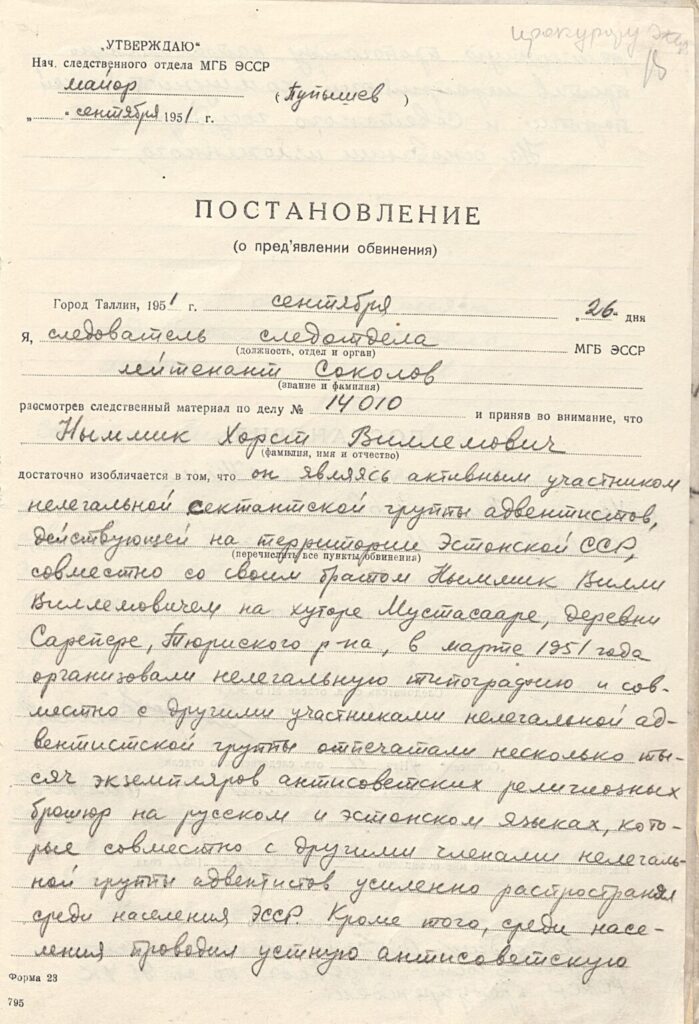 прокурору
„УТВЕРЖДАЮ“
Нач. следственного отдела МГБ ЭССР
майор (Пупышев)
„ “ сентября 1951 г.
ПОСТАНОВЛЕНИЕ
(о пред'явлении обвинения)
Город Таллин, 1951 г. сентября „26“ дня
Я, следователь следотдела МГБ ЭССР
(должность, отдел и орган)
лейтенант Соколов
(звание и фамилия)
рассмотрев следственный материал по делу № 14010 и приняв во внимание, что
Ныммик Хорст Виллемович
(фамилия, имя и отчество)
достаточно изобличается в том, что он являясь активным участником
нелегальной сектантской группы адвентистов,
действующей на территории Эстонской ССР,
(перечислить все пункты обвинения)
совместно со своим братом Ныммик Вилли
Виллемовичем на хуторе Мустасааре, деревни
Сарепере, Тюриского р-на, в марте 1951 года
организовали нелегальную типографию и сов-
местно с другими участниками нелегальной ад-
вентистской группы отпечатали несколько ты-
сяч экземпляров антисоветских религиозных
брошюр на русском и эстонском языках, кото-
рые совместно с другими членами нелегаль-
ной группы адвентистов усиленно распространял
среди населения ЭССР. Кроме того, среди насе-
ления проводил устную антисоветскую
Форма 23
795